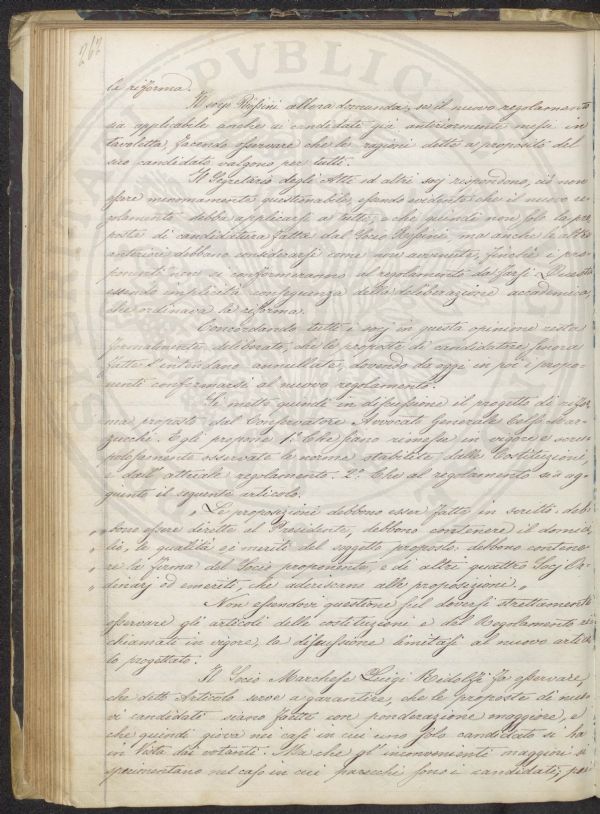 262
la riforma.
Il socio Rossini allora domanda, se il nuovo regolamento
sia applicabile anche ai candidati già anteriormente messi in
tavoletta, facendo osservare che le ragioni dette a proposito del
suo candidato valgono per tutti.
Il Segretario degli Atti ed altri socj rispondono, ciò non
essere menomamente questionabile, essendo evidente che il nuovo re-
golamento debba applicarsi a tutti, e che quindi non solo la pro-
posta di candidatura fatta dal Socio Rossini ma anche le altre
anteriori debbano considerarsi come non avvenute, finchè i pro-
ponenti non si conformeranno al regolamento da farsi. Questo
essendo implicita conseguenza della deliberazione accademica,
che ordinava la riforma.
Concordando tutti i socj in questa opinione resta
formalmente deliberato, che le proposte di candidature finora
fatte s'intendano annullate, dovendo da oggi in poi i propo-
nenti conformarsi al nuovo regolamento.
Si mette quindi in discussione il progetto di rifor-
ma proposto dal Conservatore Avvocato Generale
Egli propone 1.° Che siano rimesse in vigore e scru-
polosamente osservate le norme stabilite dalle Costituzioni,
e dall'attuale regolamento. 2.° Che al regolamento sia ag-
giunto il seguente articolo.
„ Le proposizioni debbono esser fatte in scritto. deb-
„ bono essere dirette al Presidente, debbono contenere il domici-
„ lio, le qualità e i meriti del soggetto proposto. debbono contene-
„ re la firma del Socio proponente, e di altri quattro Socj Or-
„ dinarj od emeriti, che aderiscano alla proposizione „
Non essendovi questione sul doversi strettamente
osservare gli articoli delle costituzioni e del Regolamento ri-
chiamati in vigore, la discussione limitasi al nuovo artico-
lo progettato.
Il Socio Marchese Luigi Ridolfi fa osservare,
che detto Articolo serve a garantire, che le proposte di nuo-
vi candidati siano fatte con ponderazione maggiore, e
che quindi giova nei casi in cui uno solo candidato si ha
in vista dai votanti. Ma che gl'inconvenienti maggiori si
sperimentano nel caso in cui parecchi sono i candidati; per